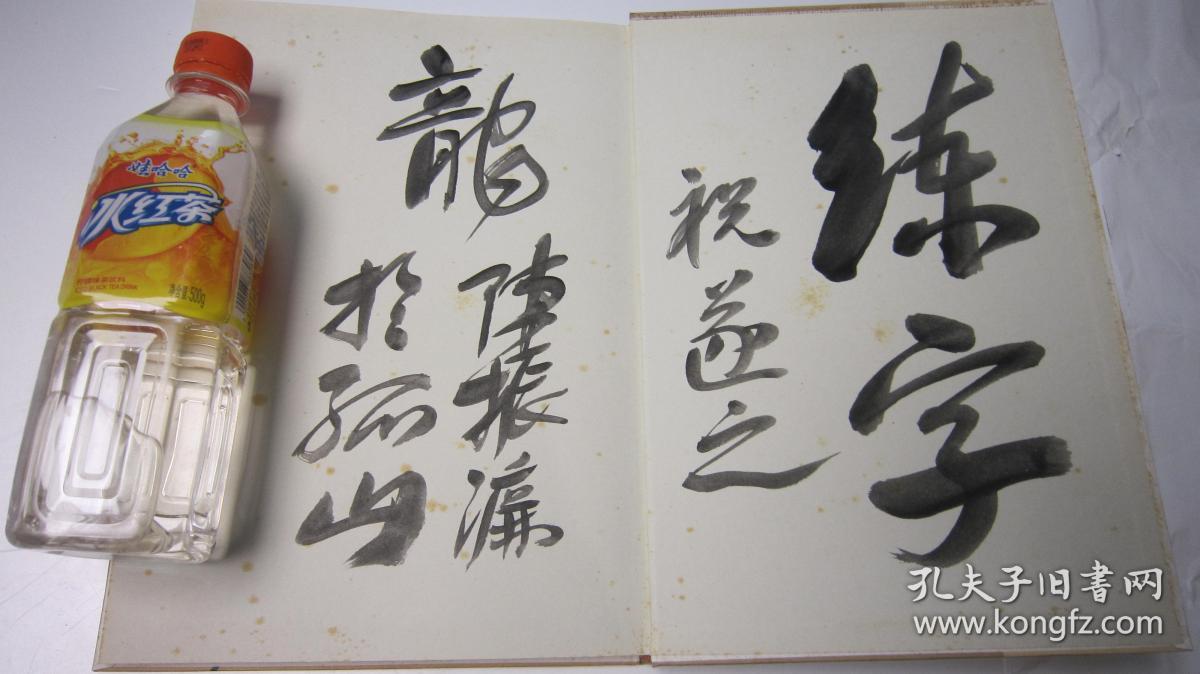 练字
祝遂之
龍
陈振濂
於孤山
娃哈哈
冰红茶
净含量:500g
孔夫子旧书网
www.kongfz.com